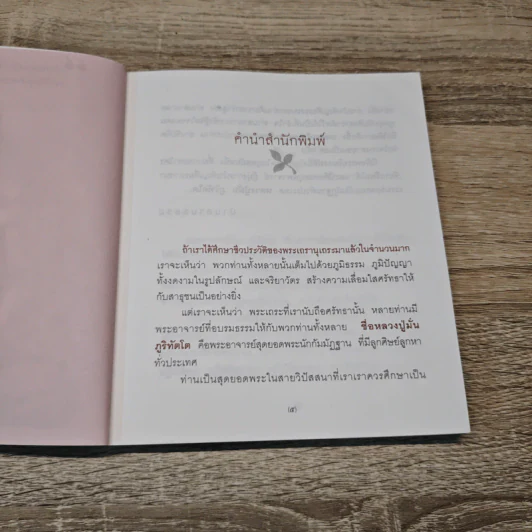 คำนำสำนักพิมพ์
ถ้าเราได้ศึกษาชีวประวัติของพระเถรานุเถระมาแล้วในจำนวนมาก
เราจะเห็นว่า พวกท่านทั้งหลายนั้นเต็มไปด้วยภูมิธรรม ภูมิปัญญา
ทั้งงดงามในรูปลักษณ์ และจริยาวัตร สร้างความเลื่อมใสศรัทธาให้
กับสาธุชนเป็นอย่างยิ่ง
แต่เราจะเห็นว่า พระเถระที่เรานับถือศรัทธานั้น หลายท่านมี
พระอาจารย์ที่อบรมธรรมให้กับพวกท่านทั้งหลาย ชื่อหลวงปู่มั่น
ภูริทัตโต คือพระอาจารย์สุดยอดพระนักกัมมัฏฐาน ที่มีลูกศิษย์ลูกหา
ทั่วประเทศ
ท่านเป็นสุดยอดพระในสายวิปัสสนาที่เราเราควรศึกษาเป็น
(๕)